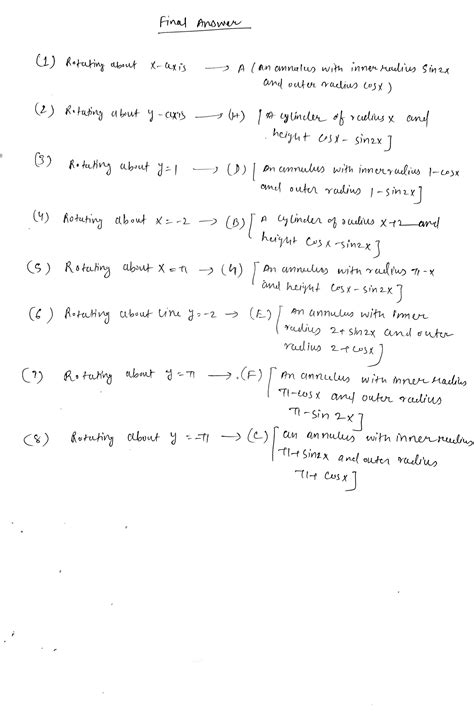 Final Answer
(1) Rotating about x-axis → A (An annulus with inner radius Sin2x
and outer radius cosx)
(2) Rotating about y-axis → (H) [A cylinder of radius x and
height cosx - sin2x]
(3) Rotating about y=1 → (D) [An annulus with inner radius 1-cosx
and outer radius 1-sin2x]
(4) Rotating about x=-2 → (B) [A cylinder of radius x+2 and
height cosx-sin2x]
(5) Rotating about x=π → (G) [An annulus with radius π-x
and height cosx-sin2x]
(6) Rotating about line y=-2 → (E) [An annulus with inner
radius 2+sin2x and outer
radius 2+cosx]
(7) Rotating about y=π → .(F) [An annulus with inner radius
π-cosx and outer radius
π-sin 2x]
(8) Rotating about y=-π → (C) [an annulus with inner radius
π+sin2x and outer radius
π+ cosx]